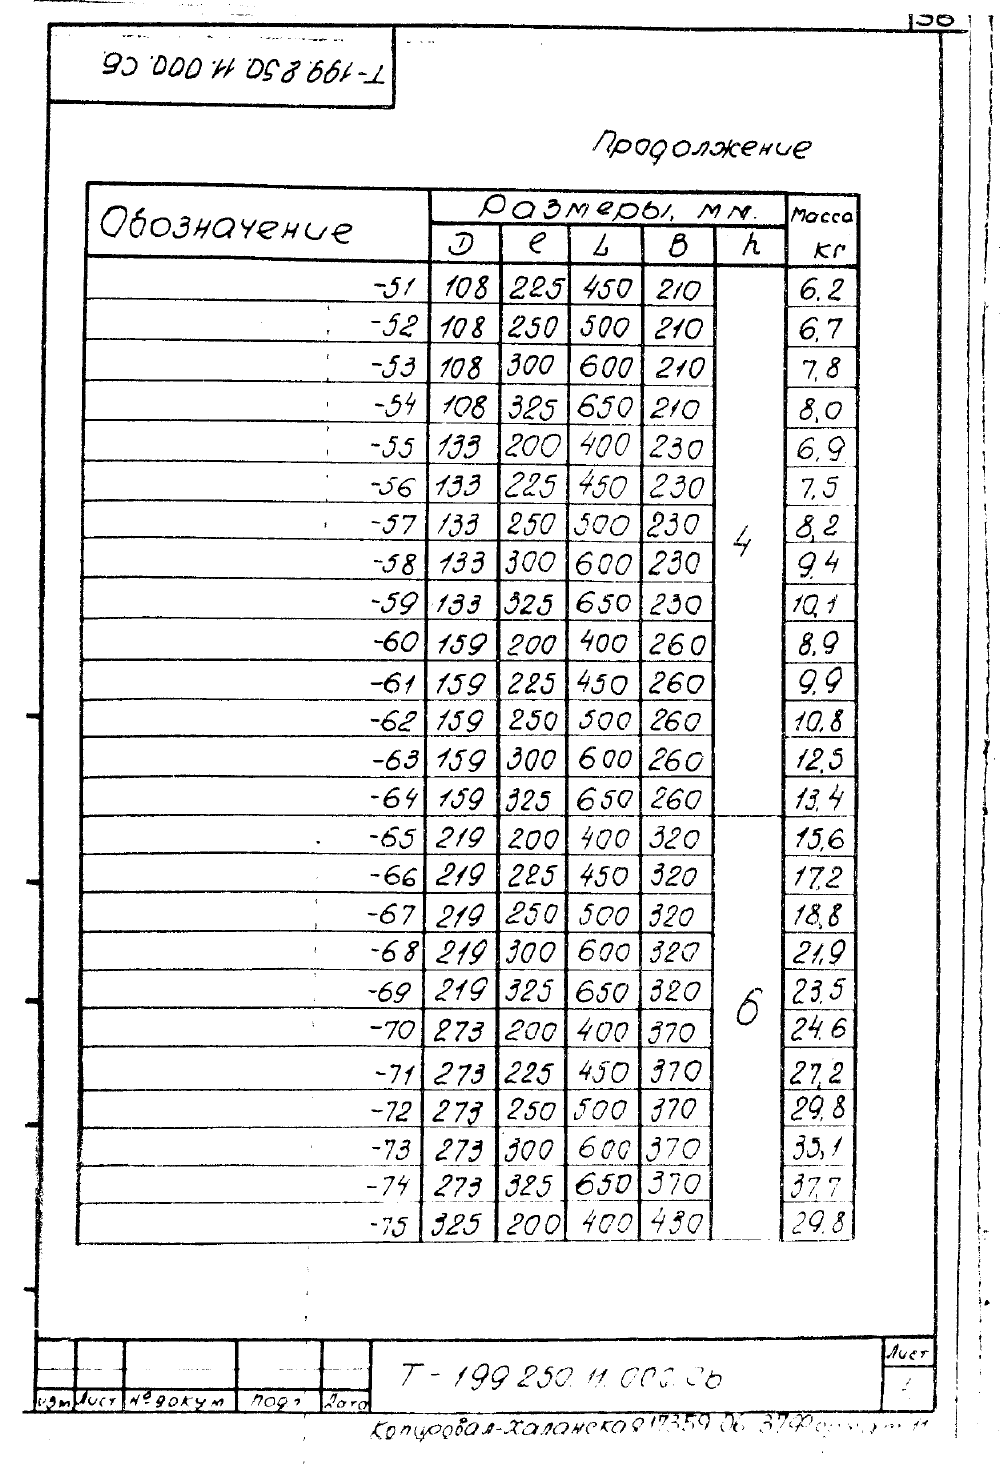 136
Т-199.250.11.000.СБ
Продолжение
Обозначение Размеры, мм. Масса кг
D ℓ L B h
-51 108 225 450 210 6,2
-52 108 250 500 210 6,7
-53 108 300 600 210 7,8
-54 108 325 650 210 8,0
-55 133 200 400 230 6,9
-56 133 225 450 230 7,5
-57 133 250 500 230 4 8,2
-58 133 300 600 230 9,4
-59 133 325 650 230 10,1
-60 159 200 400 260 8,9
-61 159 225 450 260 9,9
-62 159 250 500 260 10,8
-63 159 300 600 260 12,5
-64 159 325 650 260 13,4
-65 219 200 400 320 15,6
-66 219 225 450 320 17,2
-67 219 250 500 320 18,8
-68 219 300 600 320 21,9
-69 219 325 650 320 6 23,5
-70 273 200 400 370 24,6
-71 273 225 450 370 27,2
-72 273 250 500 370 29,8
-73 273 300 600 370 35,1
-74 273 325 650 370 37,7
-75 325 200 400 430 29,8
Т-199 250.11.000.СБ
Лист
изм Лист № докум подп Дата
Копировал-Халанская 17359 06